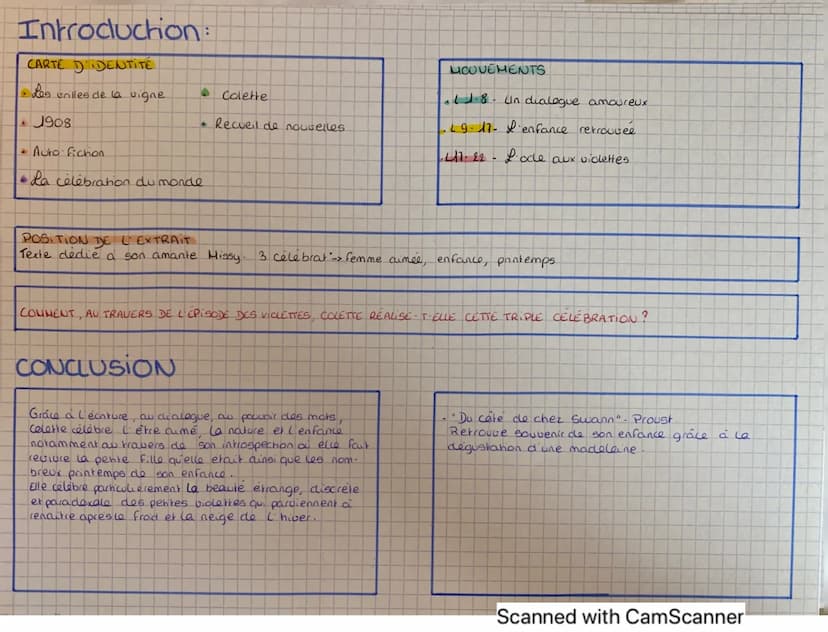 Introduction:
CARTE D'IDENTITÉ
Les vrilles de la vigne
Colette
1908
Recueil de nouvelles
Auto-fiction
La célébration du monde
MOUVEMENTS
L 1-8 - Un dialogue amoureux
L 9-17 - L'enfance retrouvée
L17-22 - L'ode aux violettes
POSITION DE L'EXTRAIT
Texte dédié à son amante Missy. 3 célébrat°-> femme aimée, enfance, printemps
COMMENT, AU TRAVERS DE L'ÉPISODE DES VIOLETTES, COLETTE RÉALISE-T-ELLE CETTE TRIPLE CÉLÉBRATION ?
CONCLUSION
Grâce à l'écriture, au dialogue, au pouvoir des mots,
Colette célèbre l'être aimé, la nature et l'enfance
notamment au travers de son introspection où elle fait
revivre la petite fille qu'elle était ainsi que les nom-
breux printemps de son enfance.
Elle célèbre particulièrement la beauté étrange, discrète
et paradoxale des petites violettes qui parviennent à
renaître après le froid et la neige de l'hiver.
- "Du côté de chez Swann" - Proust
Retrouve souvenir de son enfance grâce à la
dégustation d'une madeleine.
Scanned with CamScanner